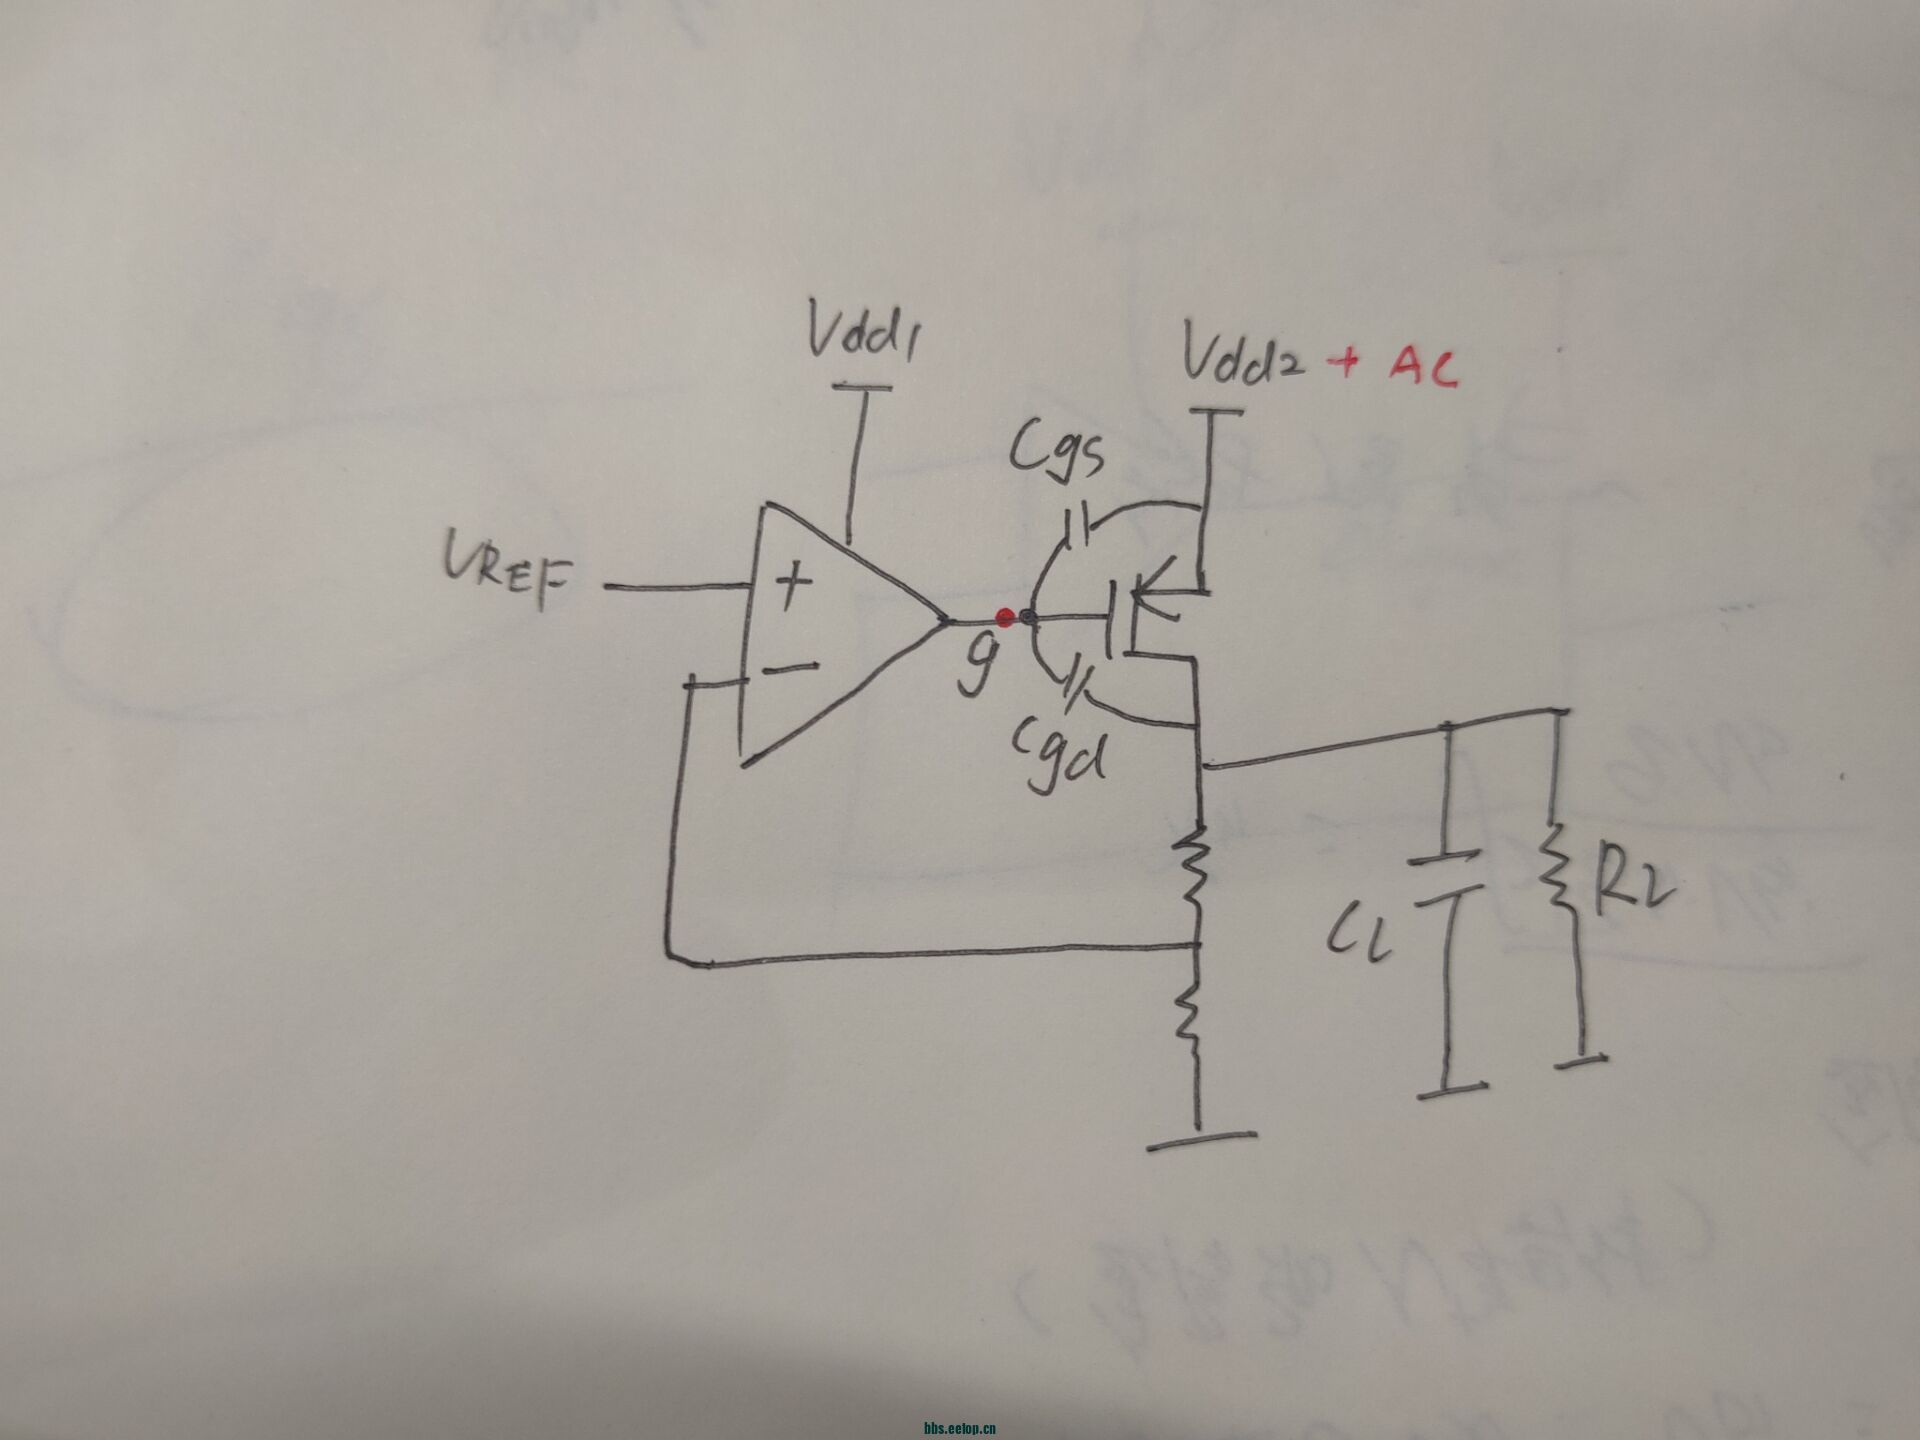 Vdd1
Vdd2 + AC
Cgs
VREF
+
g
−
Cgd
CL
RL
bbs.eetop.cn